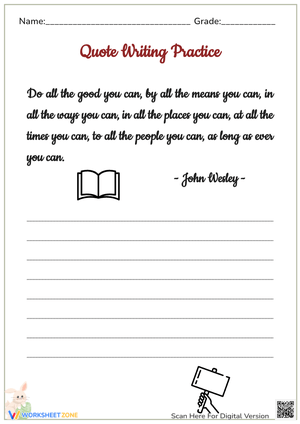 Name:________________________________ Grade:____________
Quote Writing Practice
Do all the good you can, by all the means you can, in
all the ways you can, in all the places you can, at all the
times you can, to all the people you can, as long as ever
you can.
- John Wesley -
WORKSHEETZONE
Scan Here For Digital Version